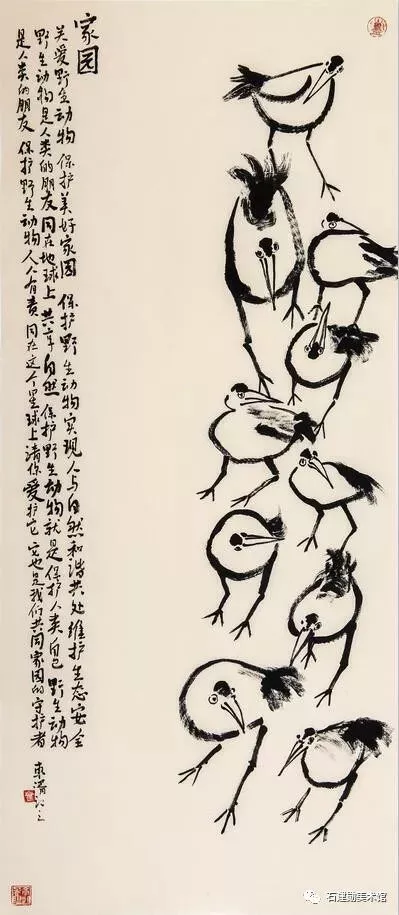 家园
关爱野生动物 保护美好家园 保护野生动物实现人与自然和谐共处维护生态安全
野生动物是人类的朋友同在地球上 共享自然 保护野生动物就是保护人类自己 野生动物
是人类的朋友 保护野生动物人人有责 同在这个星球上请你爱护它 它也是我们共同家园的守护者
石建勋美术馆